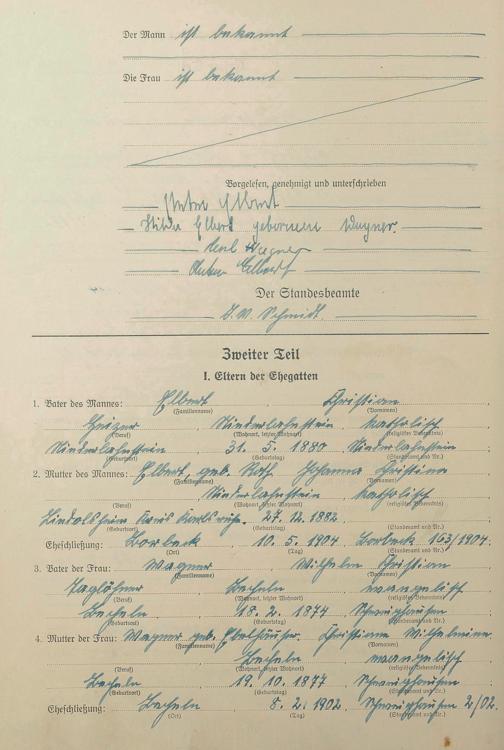 Der Mann ist bekannt
Die Frau ist bekannt
Vorgelesen, genehmigt und unterschrieben
Elbert
Hilda Elbert geborenen Wagner.
Karl Wagner
Anton Elbert
Der Standesbeamte
J.V. Schmidt.
Zweiter Teil
I. Eltern der Ehegatten
1. Vater des Mannes: Elbert Christian
(Familienname) (Vornamen)
Heizer Niederlahnstein katholisch
(Beruf) (Wohnort, letzter Wohnort) (religiöses Bekenntnis)
Niederlahnstein 31. 5. 1880 Niederlahnstein
(Geburtsort) (Geburtstag) (Standesamt und Nr.)
2. Mutter des Mannes: Elbert geb. Roth Johanna Christina
(Familienname) (Vornamen)
Niederlahnstein katholisch
(Beruf) (Wohnort, letzter Wohnort) (religiöses Bekenntnis)
Liedolsheim Kreis Karlsruhe. 27. 12. 1882
(Geburtsort) (Geburtstag) (Standesamt und Nr.)
Eheschließung: Borbeck 10. 5. 1904 Borbeck 163/1904.
(Ort) (Tag) (Standesamt und Nr.)
3. Vater der Frau: Wagner Wilhelm Christian
(Familienname) (Vornamen)
Taglöhner Becheln evangelisch
(Beruf) (Wohnort, letzter Wohnort) (religiöses Bekenntnis)
Becheln 18. 2. 1874 Schweighausen
(Geburtsort) (Geburtstag) (Standesamt und Nr.)
4. Mutter der Frau: Wagner geb. Christiane Wilhelmine
(Familienname) (Vornamen)
Becheln evangelisch
(Beruf) (Wohnort, letzter Wohnort) (religiöses Bekenntnis)
Becheln 19. 10. 1877 Schweighausen
(Geburtsort) (Geburtstag) (Standesamt und Nr.)
Eheschließung: Becheln 8. 2. 1902 Schweighausen 2/02.
(Ort) (Tag) (Standesamt und Nr.)